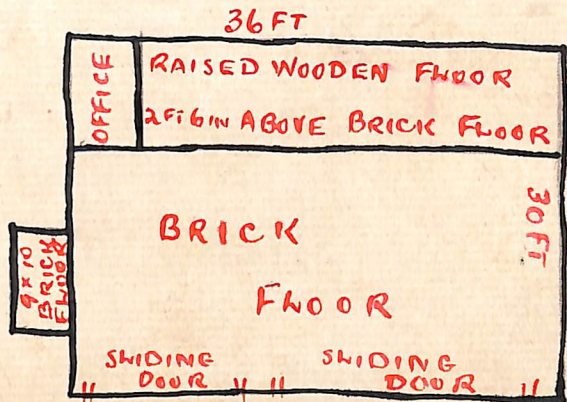 36 FT
OFFICE
RAISED WOODEN FLOOR
2 FT 6 IN ABOVE BRICK FLOOR
30 FT
BRICK
FLOOR
9 x 10
BRICK
FLOOR
SLIDING
DOOR
SLIDING
DOOR